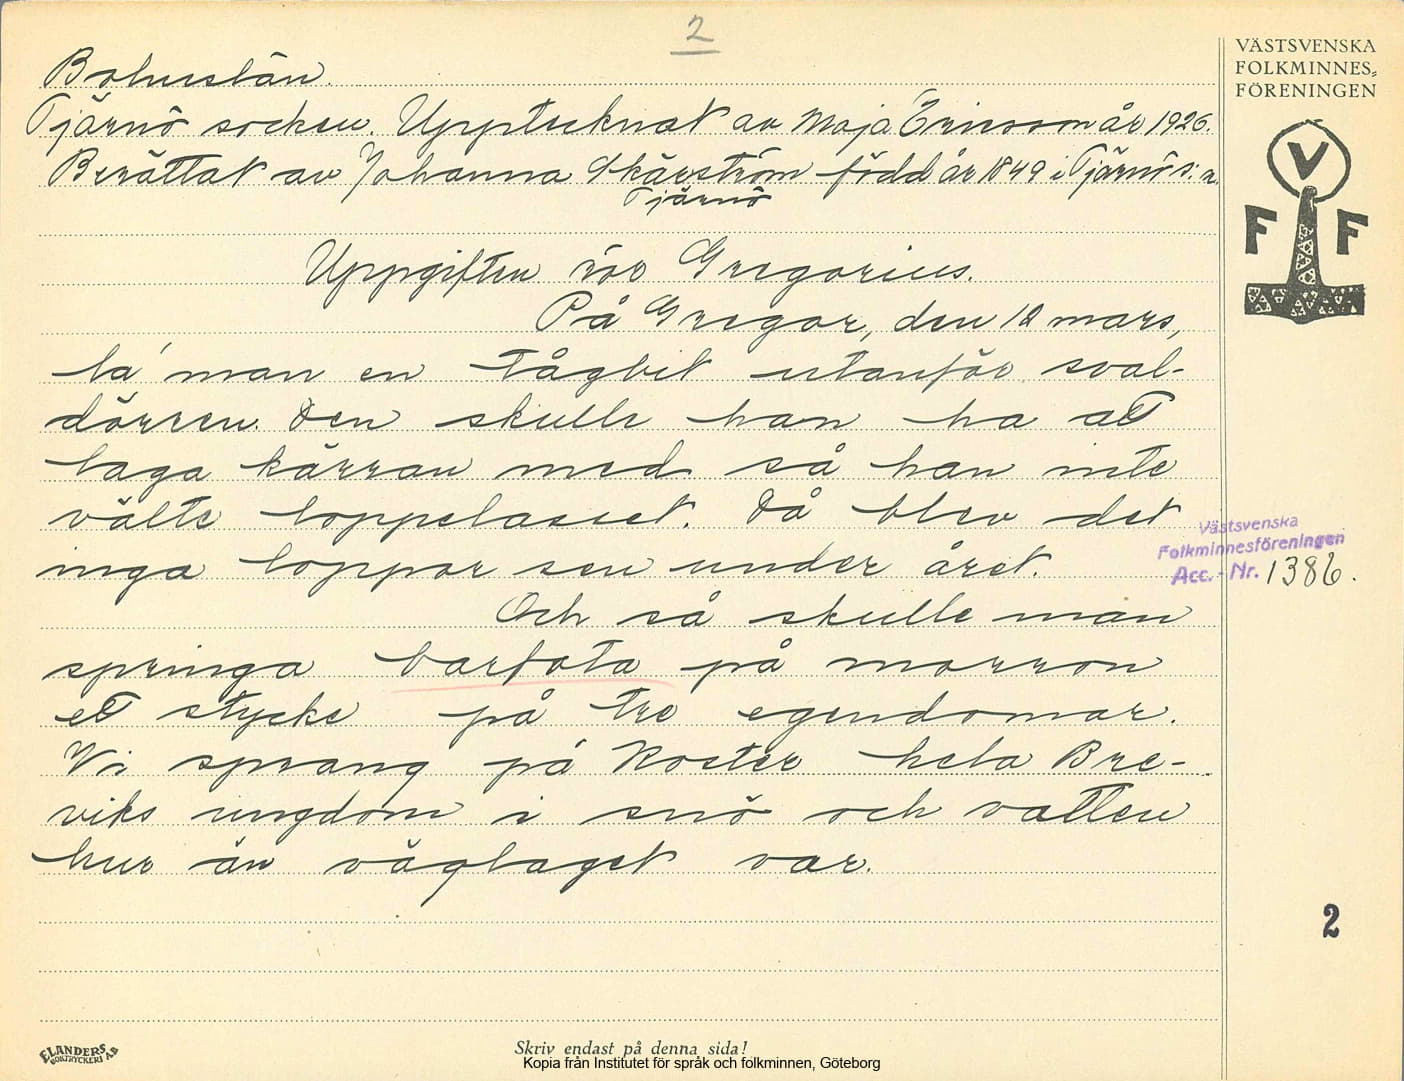 2
Bohuslän.
Tjärnö socken. Upptecknat av Maja Ericsson år 1926.
Berättat av Johanna Skärström född år 1849 i Tjärnö s:n.
Tjärnö
Uppgiften rör Gregorius.
På Gregor, den 12 mars,
la' man en tågbit utanför sval-
dörren. Den skulle han ha att
laga kärran med så han inte
välte loppelasset. Då blev det
inga loppor sen under året.
Och så skulle man
springa barfota på morron
ett stycke på tre egendomar.
Vi sprang på Koster hela Bre-
viks ungdom i snö och vatten
hur än väglaget var.
VÄSTSVENSKA
FOLKMINNES-
FÖRENINGEN
V
F F
Västsvenska
Folkminnesföreningen
Acc.-Nr. 1386.
2
ELANDERS
BOKTRYCKERI AB
Skriv endast på denna sida!
Kopia från Institutet för språk och folkminnen, Göteborg